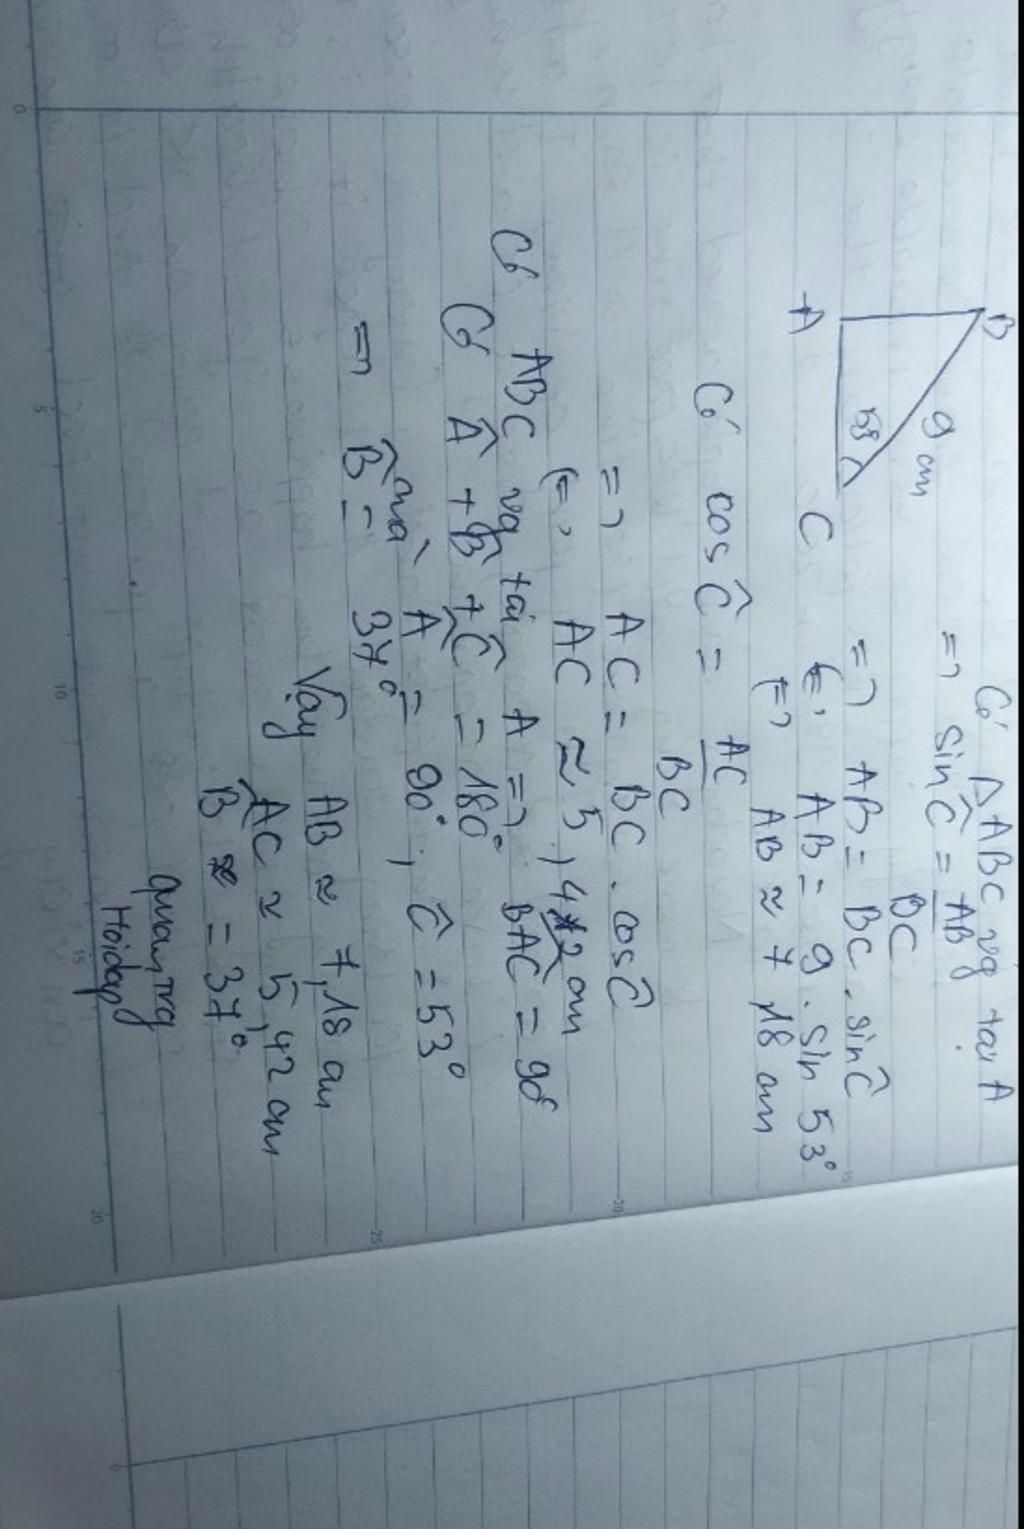 B
9 cm
A
53
C
Có ΔABC vg tại A
=> sin Ĉ = AB
BC
=> AB = BC . sin Ĉ
<=> AB = 9 . sin 53°
<=> AB ≈ 7,18 cm
Có cos Ĉ = AC
BC
=> AC = BC . cos Ĉ
<=> AC ≈ 5,42 cm
Có ABC vg tại A => BAC = 90°
Có Â + B̂ + Ĉ = 180°
mà Â = 90°, Ĉ = 53°
=> B̂ = 37°
Vậy AB ≈ 7,18 cm
AC ≈ 5,42 cm
B̂ = 37°
quan,trg
Hoidap